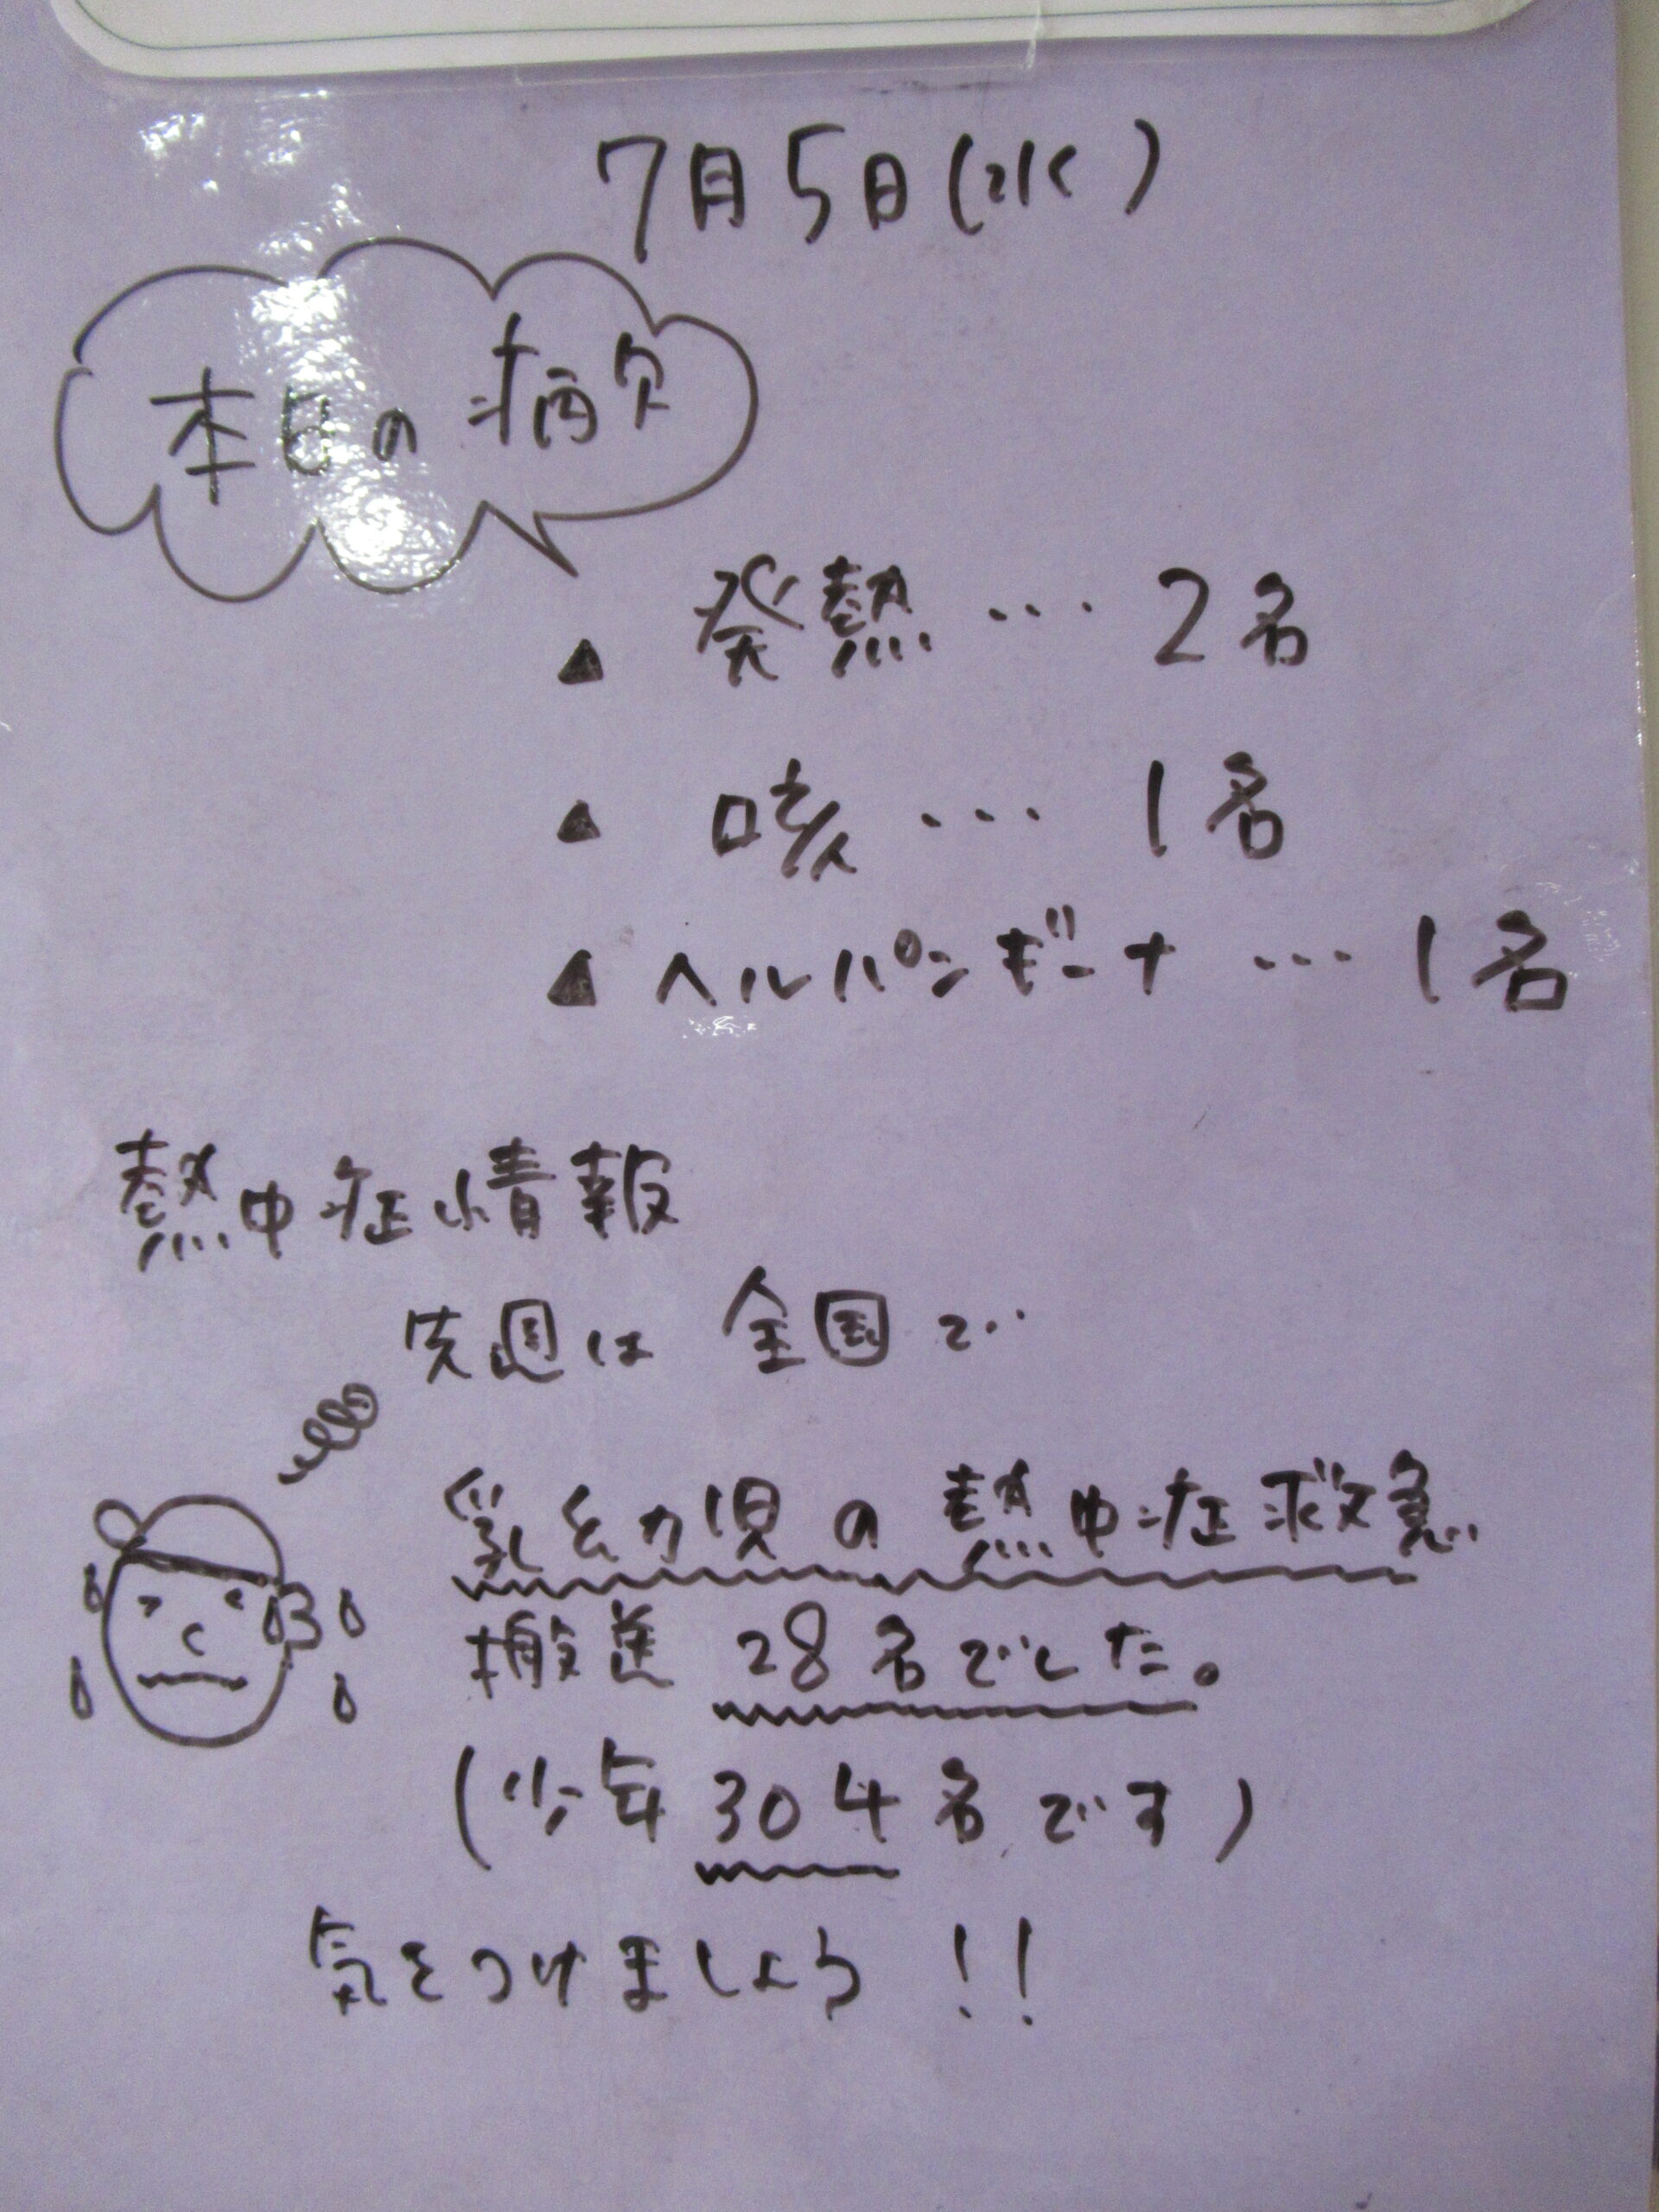 7月5日(水)
本日の病欠
▲ 発熱 … 2名
▲ 咳 … 1名
▲ ヘルパンギーナ … 1名
熱中症情報
先週は 全国で
乳幼児の熱中症救急
搬送 28名でした。
(少年 304名です)
気をつけましょう!!